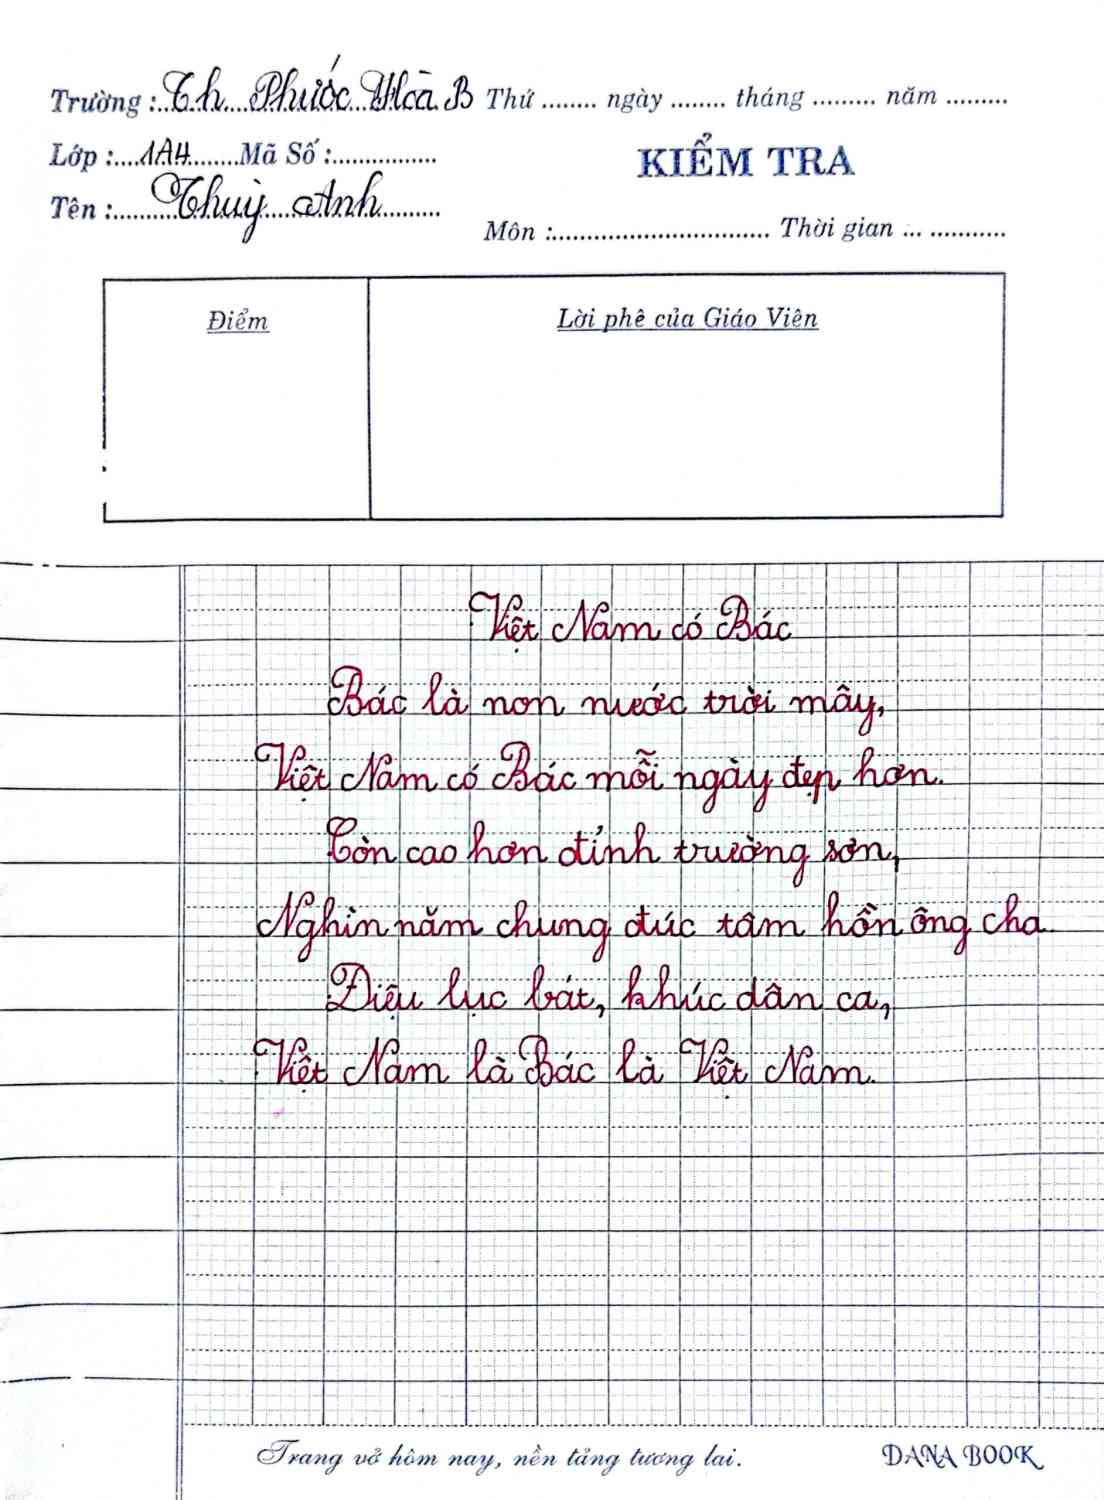 Trường :..Th Phước Hòa B Thứ ........ ngày ........ tháng ......... năm .........
Lớp :....1A4.......Mã Số :...............
KIỂM TRA
Tên :.........Thuỳ Anh.........
Môn :............................... Thời gian ... ...........
Điểm
Lời phê của Giáo Viên
Việt Nam có Bác
Bác là non nước trời mây,
Việt Nam có Bác mỗi ngày đẹp hơn.
Còn cao hơn đỉnh trường sơn,
Nghìn năm chung đúc tâm hồn ông cha.
Điệu lục bát, khúc dân ca,
Việt Nam là Bác là Việt Nam.
Trang vở hôm nay, nền tảng tương lai.
DANA BOOK